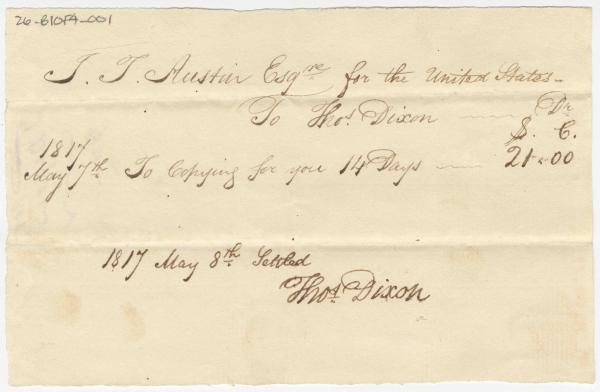 26-B10F4-001
J. T. Austin Esqre. for the United States -
To Thos. Dixon Dr.
$. C.
1817
May 7th. To Copying for you 14 Days 21 - 00
1817 May 8th. Settled
Thos. Dixon